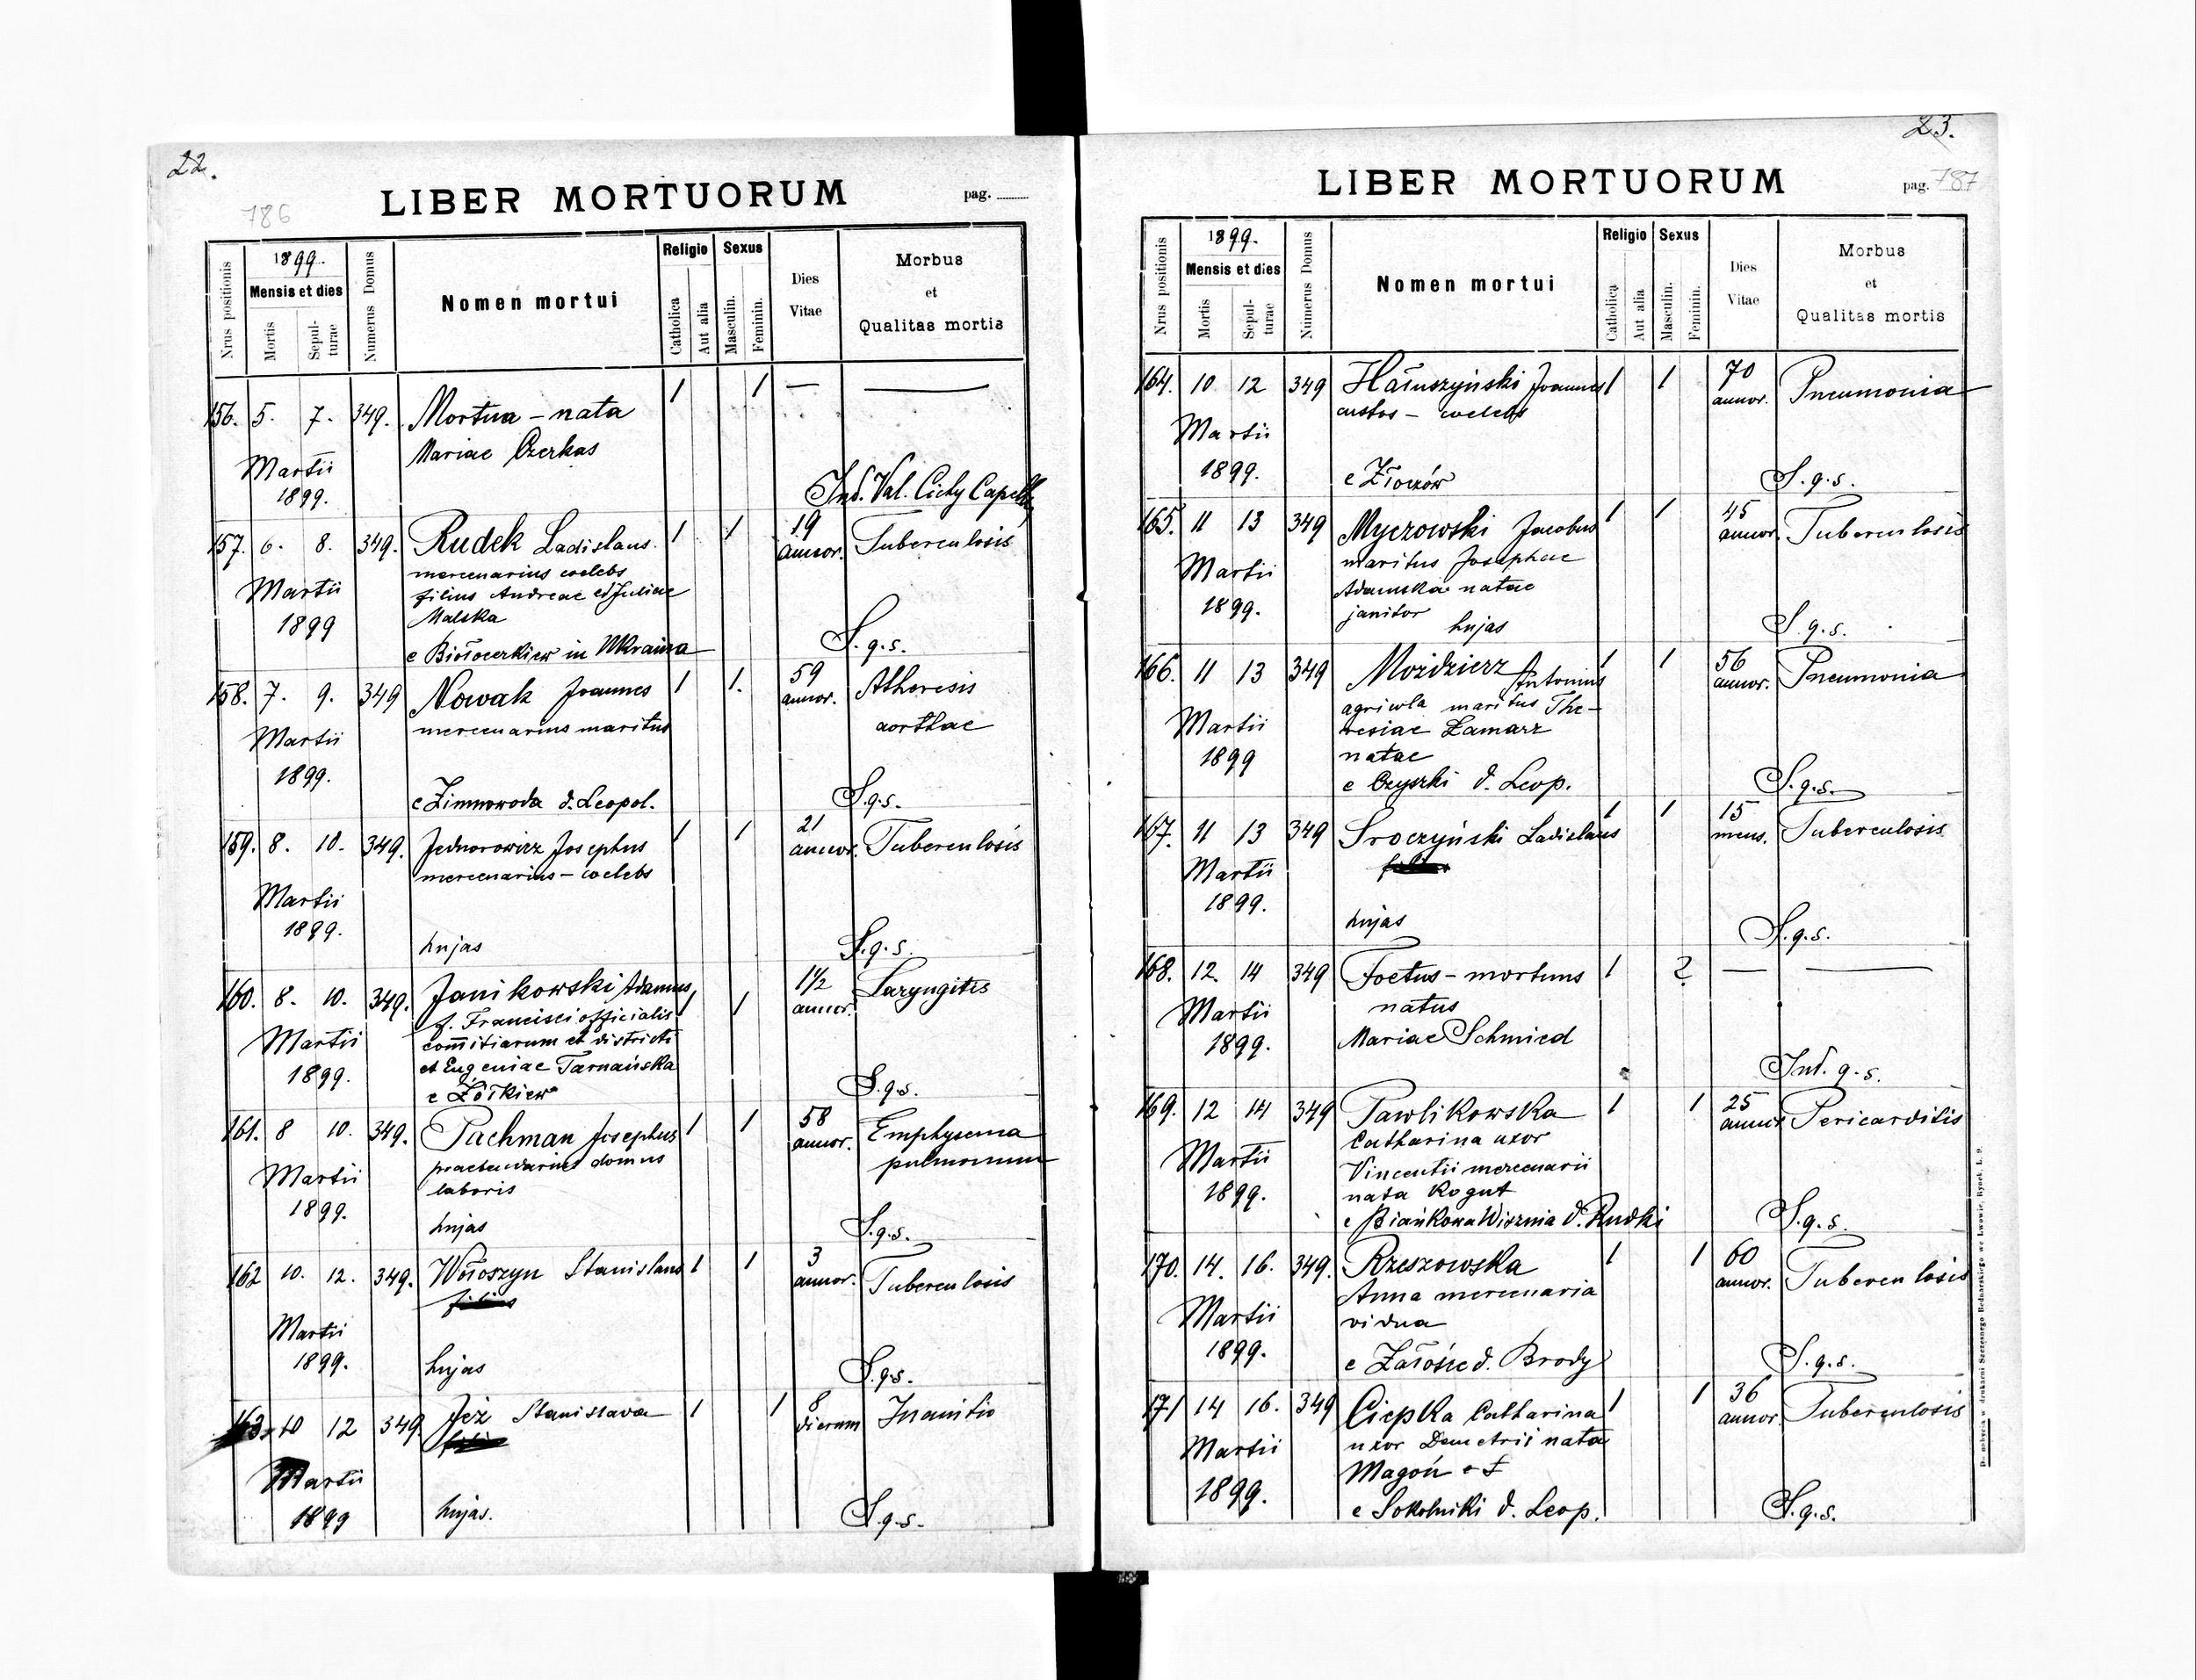 22.
786
LIBER MORTUORUM
pag.
Nrus positionis
1899.
Mensis et dies
Mortis
Sepul-
turae
Numerus Domus
Nomen mortui
Religio
Catholica
Aut alia
Sexus
Masculin.
Feminin.
Dies
Vitae
Morbus
et
Qualitas mortis
156. 5. 7. 349. Mortua - nata 1 1 — —
Mariae Czerkas
Martii
1899.
Inf. Val. Cichy Capell.
157. 6. 8. 349. Rudek Ladislaus. 1 1 19 annor. Tuberculosis
mercenarius coelebs
filius Andreae et Juliae
Malska
Martii
1899
e Białocerkiew in Ukraina
S. q. s.
158. 7. 9. 349 Nowak Joannes 1 1. 59 annor. Atheresis
mercenarius maritus aorthae
Martii
1899.
e Zimnowoda d. Leopol.
S. q. s.
159. 8. 10. 349. Jednorowicz Josephus 1 1 21 annor. Tuberculosis
mercenarius - coelebs
Martii
1899.
hujas
S. q. s.
160. 8. 10. 349. Janikowski Adamus 1 1 1½ annor. Laryngitis
f. Francisci officialis
comitiarum et districti
et Eugeniae Tarnańska
Martii
1899.
e Żółkiew
S. q. s.
161. 8 10. 349. Pachman Josephus 1 1 58 annor. Emphysema
praebendarius domus pulmonum
laboris
Martii
1899.
hujas
S. q. s.
162 10. 12. 349. Wołoszyn Stanislaus 1 1 3 annor. Tuberculosis
filius
Martii
1899.
hujas
S. q. s.
163. 10 12 349 Jeż Stanislava 1 1 8 dierum Inanitio
Martii
1899
hujas.
S. q. s.
23.
LIBER MORTUORUM
pag. 787
Nrus positionis
1899.
Mensis et dies
Mortis
Sepul-
turae
Numerus Domus
Nomen mortui
Religio
Catholica
Aut alia
Sexus
Masculin.
Feminin.
Dies
Vitae
Morbus
et
Qualitas mortis
164. 10 12 349 Hałuszyński Joannes 1 1 70 annor. Pneumonia
custos - coelebs
Martii
1899.
e Złoczów
S. q. s.
165. 11 13 349 Myczowski Jacobus 1 1 45 annor. Tuberculosis
maritus Josephae
Adamska natae
janitor
Martii
1899.
hujas
S. q. s.
166. 11 13 349 Moździerz Antonius 1 1 56 annor. Pneumonia
agricola maritus The-
resiae Zamarz
natae
Martii
1899
e Czyszki d. Leop.
S. q. s.
167. 11 13 349 Sroczyński Ladislaus 1 1 15 mens. Tuberculosis
Martii
1899.
hujas
S. q. s.
168. 12. 14 349 Foetus - mortuus 1 ? — —
natus
Mariae Schmied
Martii
1899.
Inf. q. s.
169. 12 14 349 Pawlikowska 1 1 25 annor. Pericarditis
Catharina uxor
Vincentii mercenarii
nata Kogut
Martii
1899.
e Biańkowa Wisznia d. Rudki
S. q. s.
170. 14. 16. 349. Rzeszowska 1 1 60 annor. Tuberculosis
Anna mercenaria
vidua
Martii
1899.
e Załośce d. Brody
S. q. s.
171 14 16. 349 Ciepka Catharina 1 1 36 annor. Tuberculosis
uxor Demetrii nata
Magoń
Martii
1899.
e Sokolniki d. Leop.
S. q. s.
Do nabycia w drukarni Szczęsnego Bednarskiego we Lwowie, Rynek L. 9.